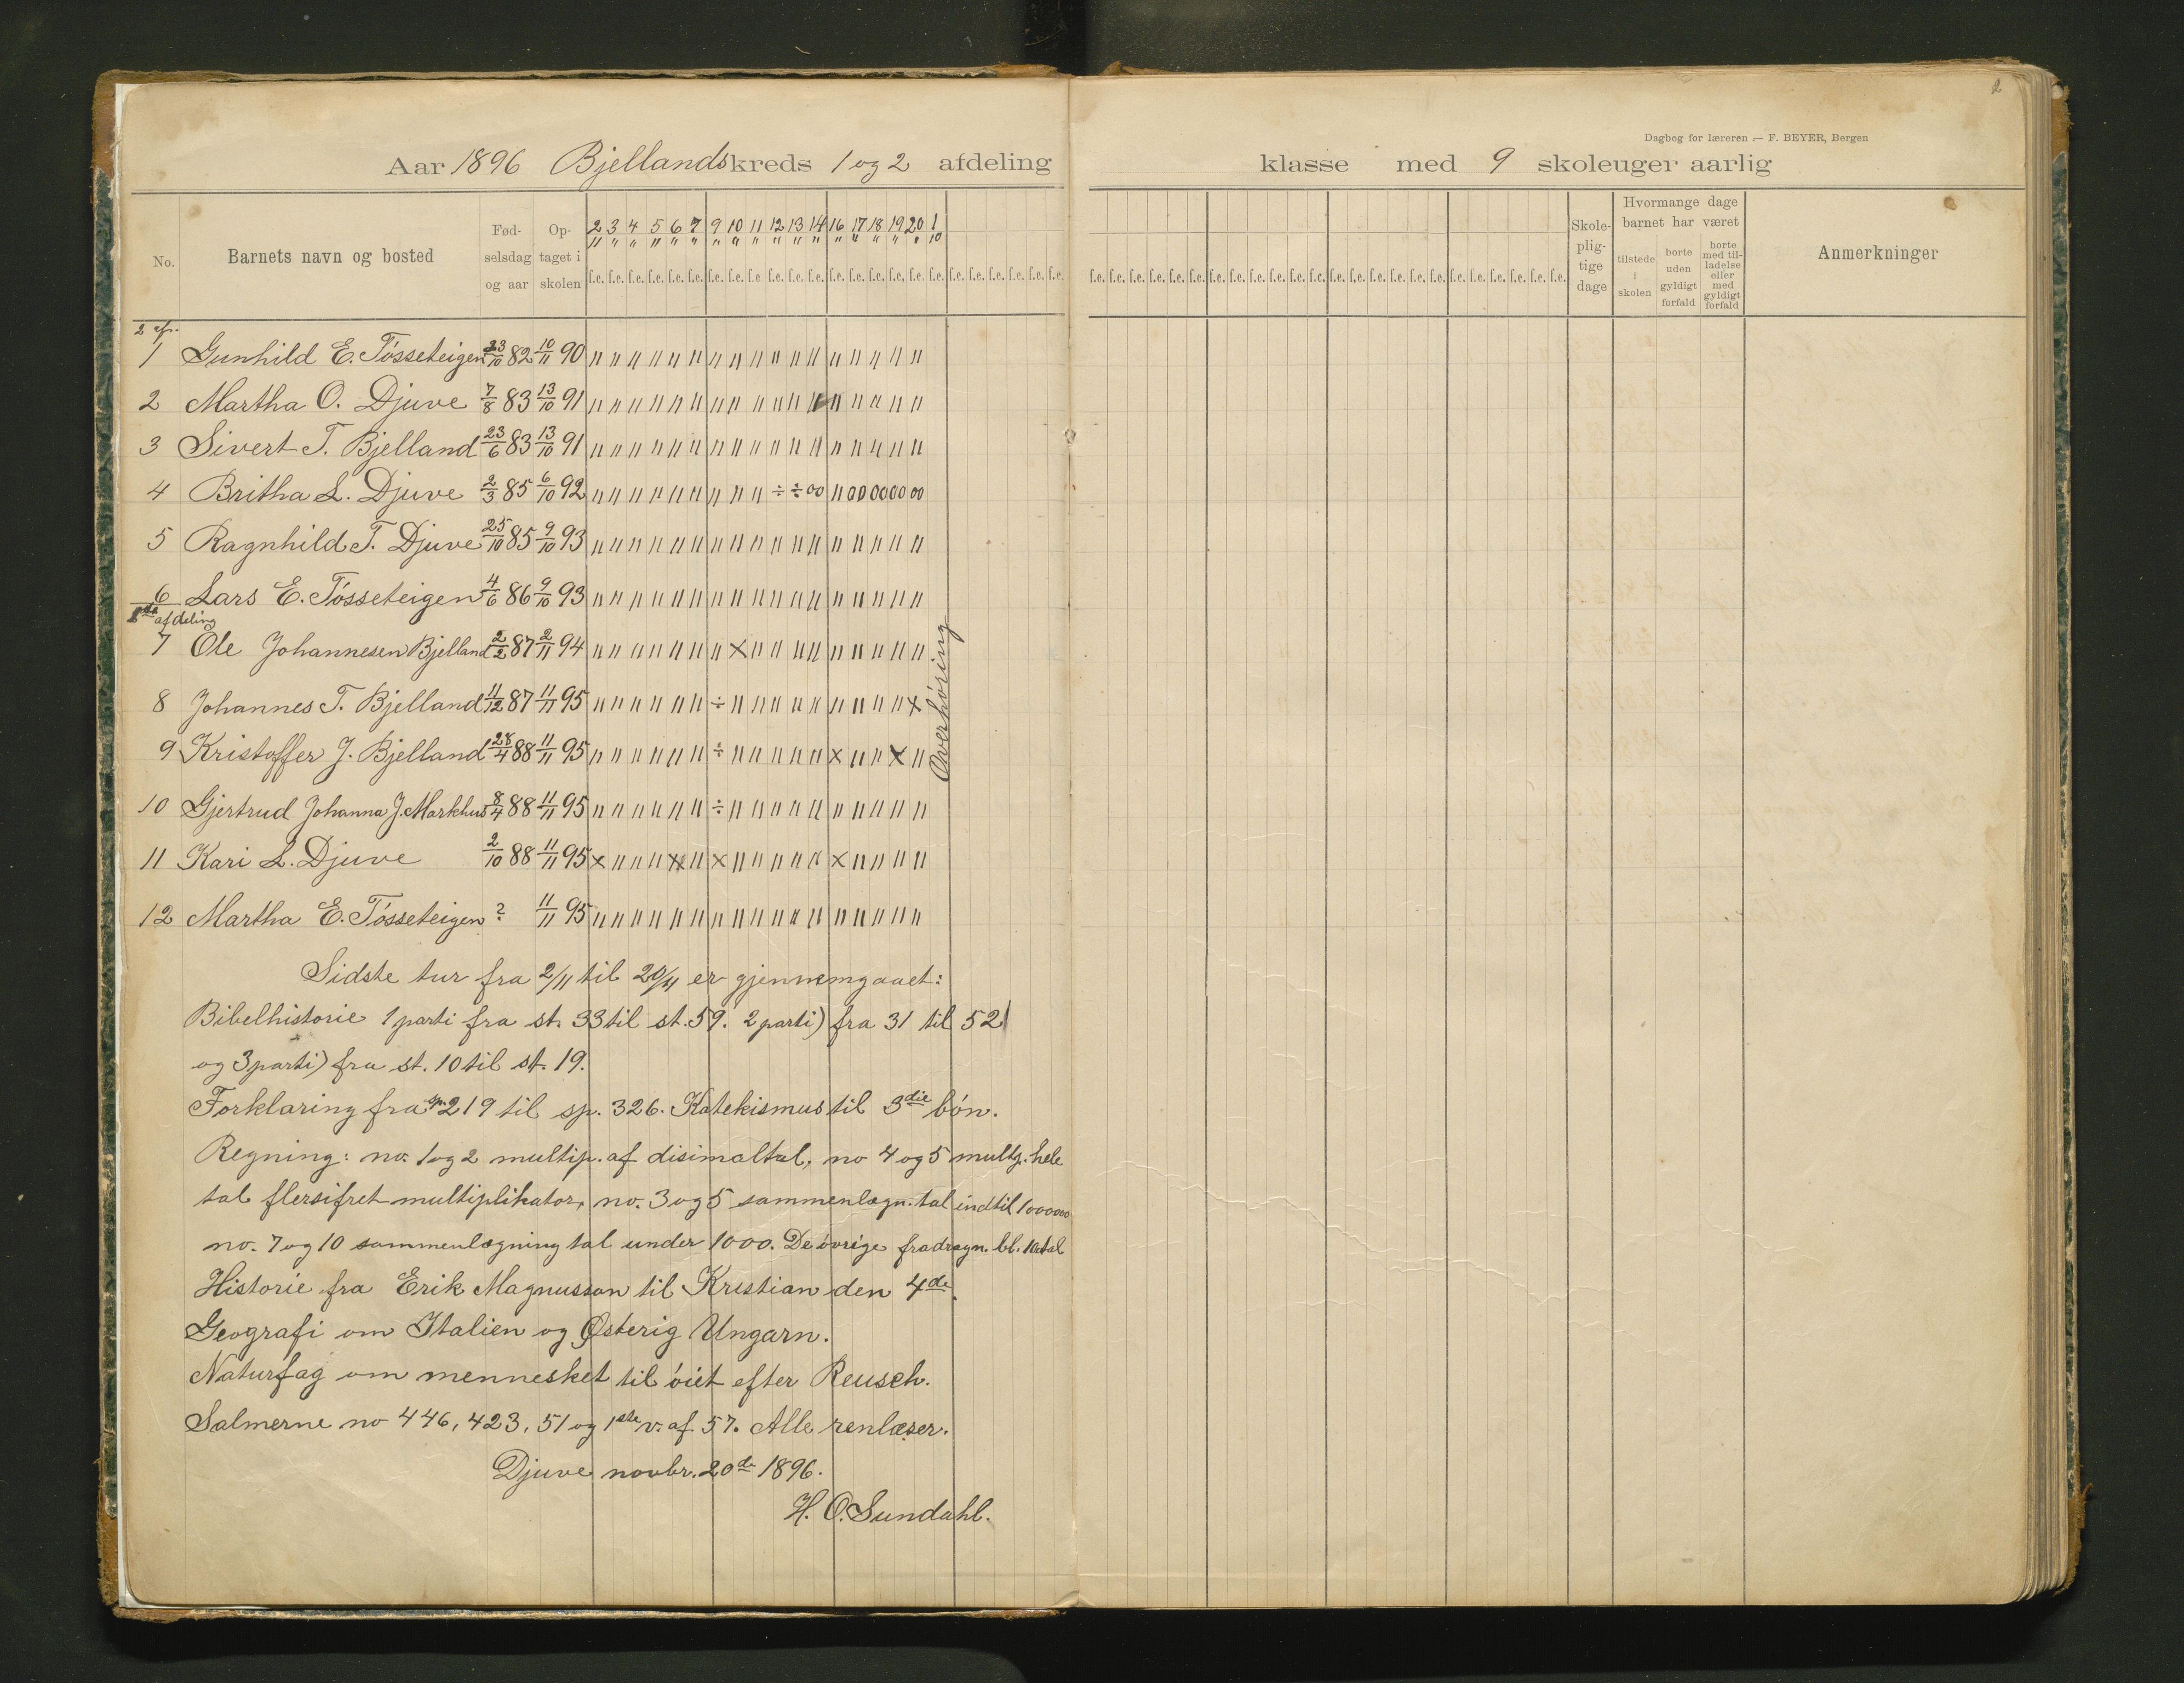 2
Dagbog for læreren — F. BEYER, Bergen
Aar 1896 Bjellandskreds 1 og 2 afdeling
klasse med 9 skoleuger aarlig
No. Barnets navn og bosted Fødselsdag og aar Optaget i skolen 2/11 3 " 4 " 5 " 6 " 7 " 9 " 10 " 11 " 12 " 13 " 14 " 16 " 17 " 18 " 19 " 20 " 1/10
f.e. f.e. f.e. f.e. f.e. f.e. f.e. f.e. f.e. f.e. f.e. f.e. f.e. f.e. f.e. f.e. f.e. f.e. f.e. f.e. f.e. f.e. f.e. f.e.
f.e. f.e. f.e. f.e. f.e. f.e. f.e. f.e. f.e. f.e. f.e. f.e. f.e. f.e. f.e. f.e. f.e. f.e. f.e. f.e. f.e. f.e. f.e. f.e.
Skolepligtige dage
Hvormange dage barnet har været
tilstede i skolen
borte uden gyldigt forfald
borte med tilladelse eller med gyldigt forfald
Anmerkninger
2 afr.
1 Gunhild E. Tósseteigen 23/10 82 10/11 90 " " " " " " " " " " " " " " " " "
2 Martha O. Djuve 7/8 83 13/10 91 " " " " " " " " " " " " " " " " "
3 Sivert T. Bjelland 23/6 83 13/10 91 " " " " " " " " " " " " " " " " "
4 Britha L. Djuve 2/3 85 6/10 92 " " " " " " " " " ÷ ÷ 00 " 00 00 00 00
5 Ragnhild T. Djuve 25/10 85 9/10 93 " " " " " " " " " " " " " " " " "
6 Lars E. Tósseteigen 4/6 86 9/10 93 " " " " " " " " " " " " " " " " "
1ste afdeling
7 Ole Johannesen Bjelland 2/2 87 2/11 94 " " " " " " " × " " " " " " " " "
8 Johannes T. Bjelland 11/12 87 11/11 95 " " " " " " ÷ " " " " " " " " " ×
9 Kristoffer J. Bjelland 28/4 88 11/11 95 " " " " " " ÷ " " " " " × " " × "
10 Gjertrud Johanna J. Markhus 8/4 88 11/11 95 " " " " " " ÷ " " " " " " " " " "
11 Kari L. Djuve 2/10 88 11/11 95 × " " " × " × " " " " " × " " " "
12 Martha E. Tósseteigen ? 11/11 95 " " " " " " " " " " " " " " " " "
Overhósing
Sidste tur fra 2/11 til 20/11 er gjennemgaaet:
Bibelhistorie 1 parti fra st. 33 til st. 59. 2 parti) fra 31 til 52
og 3 parti) fra st. 10 til st. 19.
Forklaring fra sp. 219 til sp. 326. Katekismus til 3die bón.
Regning: no. 1 og 2 multip. af disimaltal, no 4 og 5 multp. hele
tal flersifret multiplikator, no. 3 og 5 sammenlægn. tal indtil 1000000
no. 7 og 10 sammenlægning tal under 1000. De óvrige fradragn. bl. 10 tal
Historie fra Erik Magnusson til Kristian den 4de.
Geografi om Italien og Østerig Ungarn.
Naturfag om mennesket til óiet efter Reusch.
Salmerne no 446, 423, 51 og 1ste v. af 57. Alle renlæser.
Djuve novbr. 20de 1896.
H. O. Sundahl.